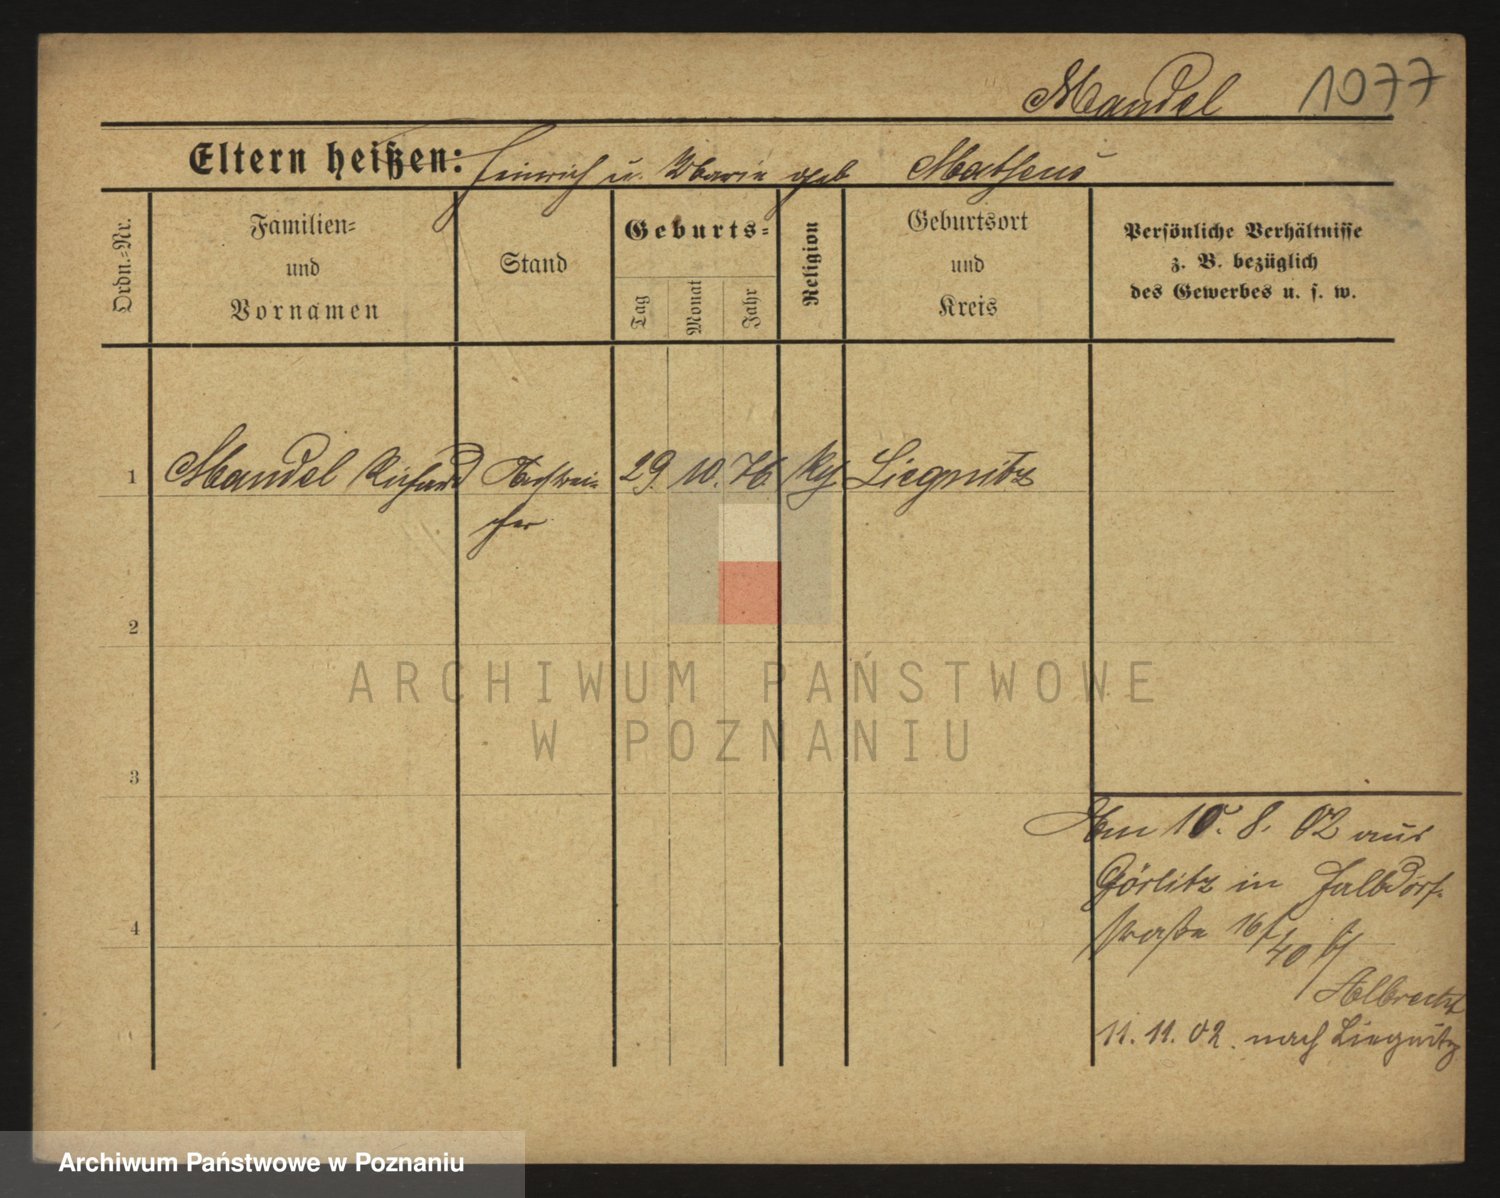 Mandel 1077
Eltern heißen: Heinrich u. Marie geb Matheus
Ordn.-Nr.
Familien-
und
Vornamen
Stand
Geburts-
Tag
Monat
Jahr
Religion
Geburtsort
und
Kreis
Persönliche Verhältnisse
z. B. bezüglich
des Gewerbes u. s. w.
1 Mandel Richard 29. 10. 76. Liegnitz
2
3
4
Am 10. 8. 02 aus
Görlitz in Halbdorf-
straße 16/40 b/
Albrecht
11. 11. 02. nach Liegnitz
ARCHIWUM PAŃSTWOWE
W POZNANIU
Archiwum Państwowe w Poznaniu